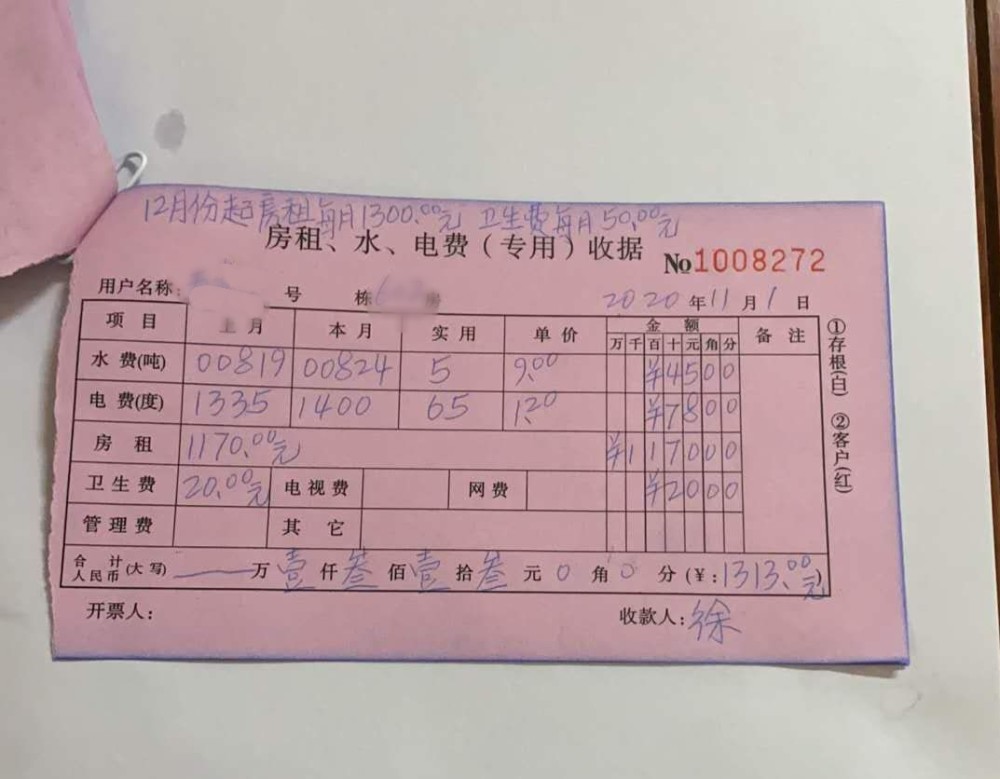 12月份起房租每月1300.00元 卫生费每月50.00元
房租、水、电费(专用)收据 №1008272
用户名称: 号 栋 房 2020年11月1日
项目 上月 本月 实用 单价 金额 万千百十元角分 备注
水费(吨) 00819 00824 5 9.00 ¥4500
电费(度) 1335 1400 65 1.20 ¥7800
房租 1170.00元 ¥117000
卫生费 20.00元 电视费 网费 ¥2000
管理费 其它
合计人民币(大写) — 万壹仟叁佰壹拾叁元0角0分(¥:1313.00元)
开票人: 收款人:徐
①存根(白) ②客户(红)